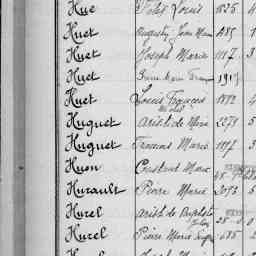 Hue Jules Louis 1875 4
Huet Auguste Jean Marie 485 1
Huet Joseph Marie 1117 3
Huet Marie 191
Huet Louis François 1892 4
Huguet Aristide Marie 2279 5
Huguet François Marie 1197 3
Huon Constant Marie
Hurault Pierre Marie 2073 5
Hurel Aristide Baptiste
Hurel Pierre Marie 685 2